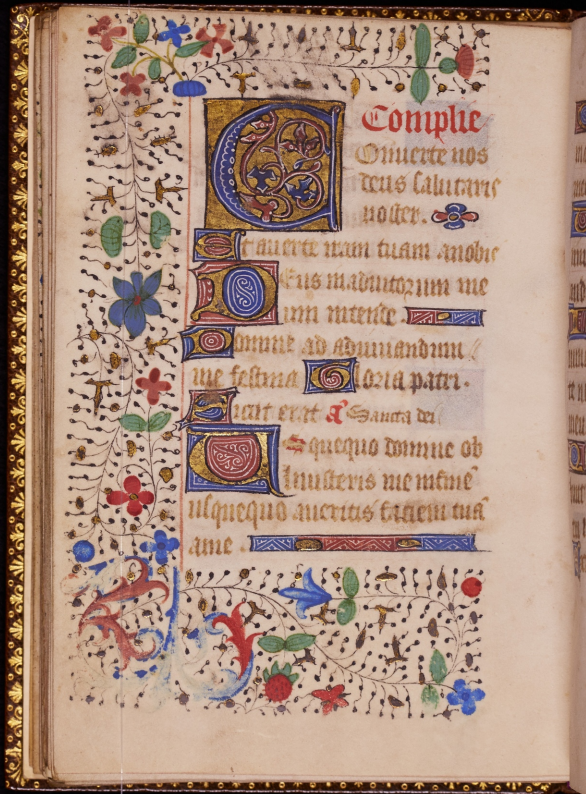 Complie
Conuerte nos
deus salutaris
noster.
Et auerte iram tuam anobis
Deus in adiutorium me
um intende
Domine ad adiuuandum
me festina Gloria patri.
Sicut erat a Sancta dei
Usquequo domine ob
liuisceris me infine
usquequo auertis faciem tuā
ame.